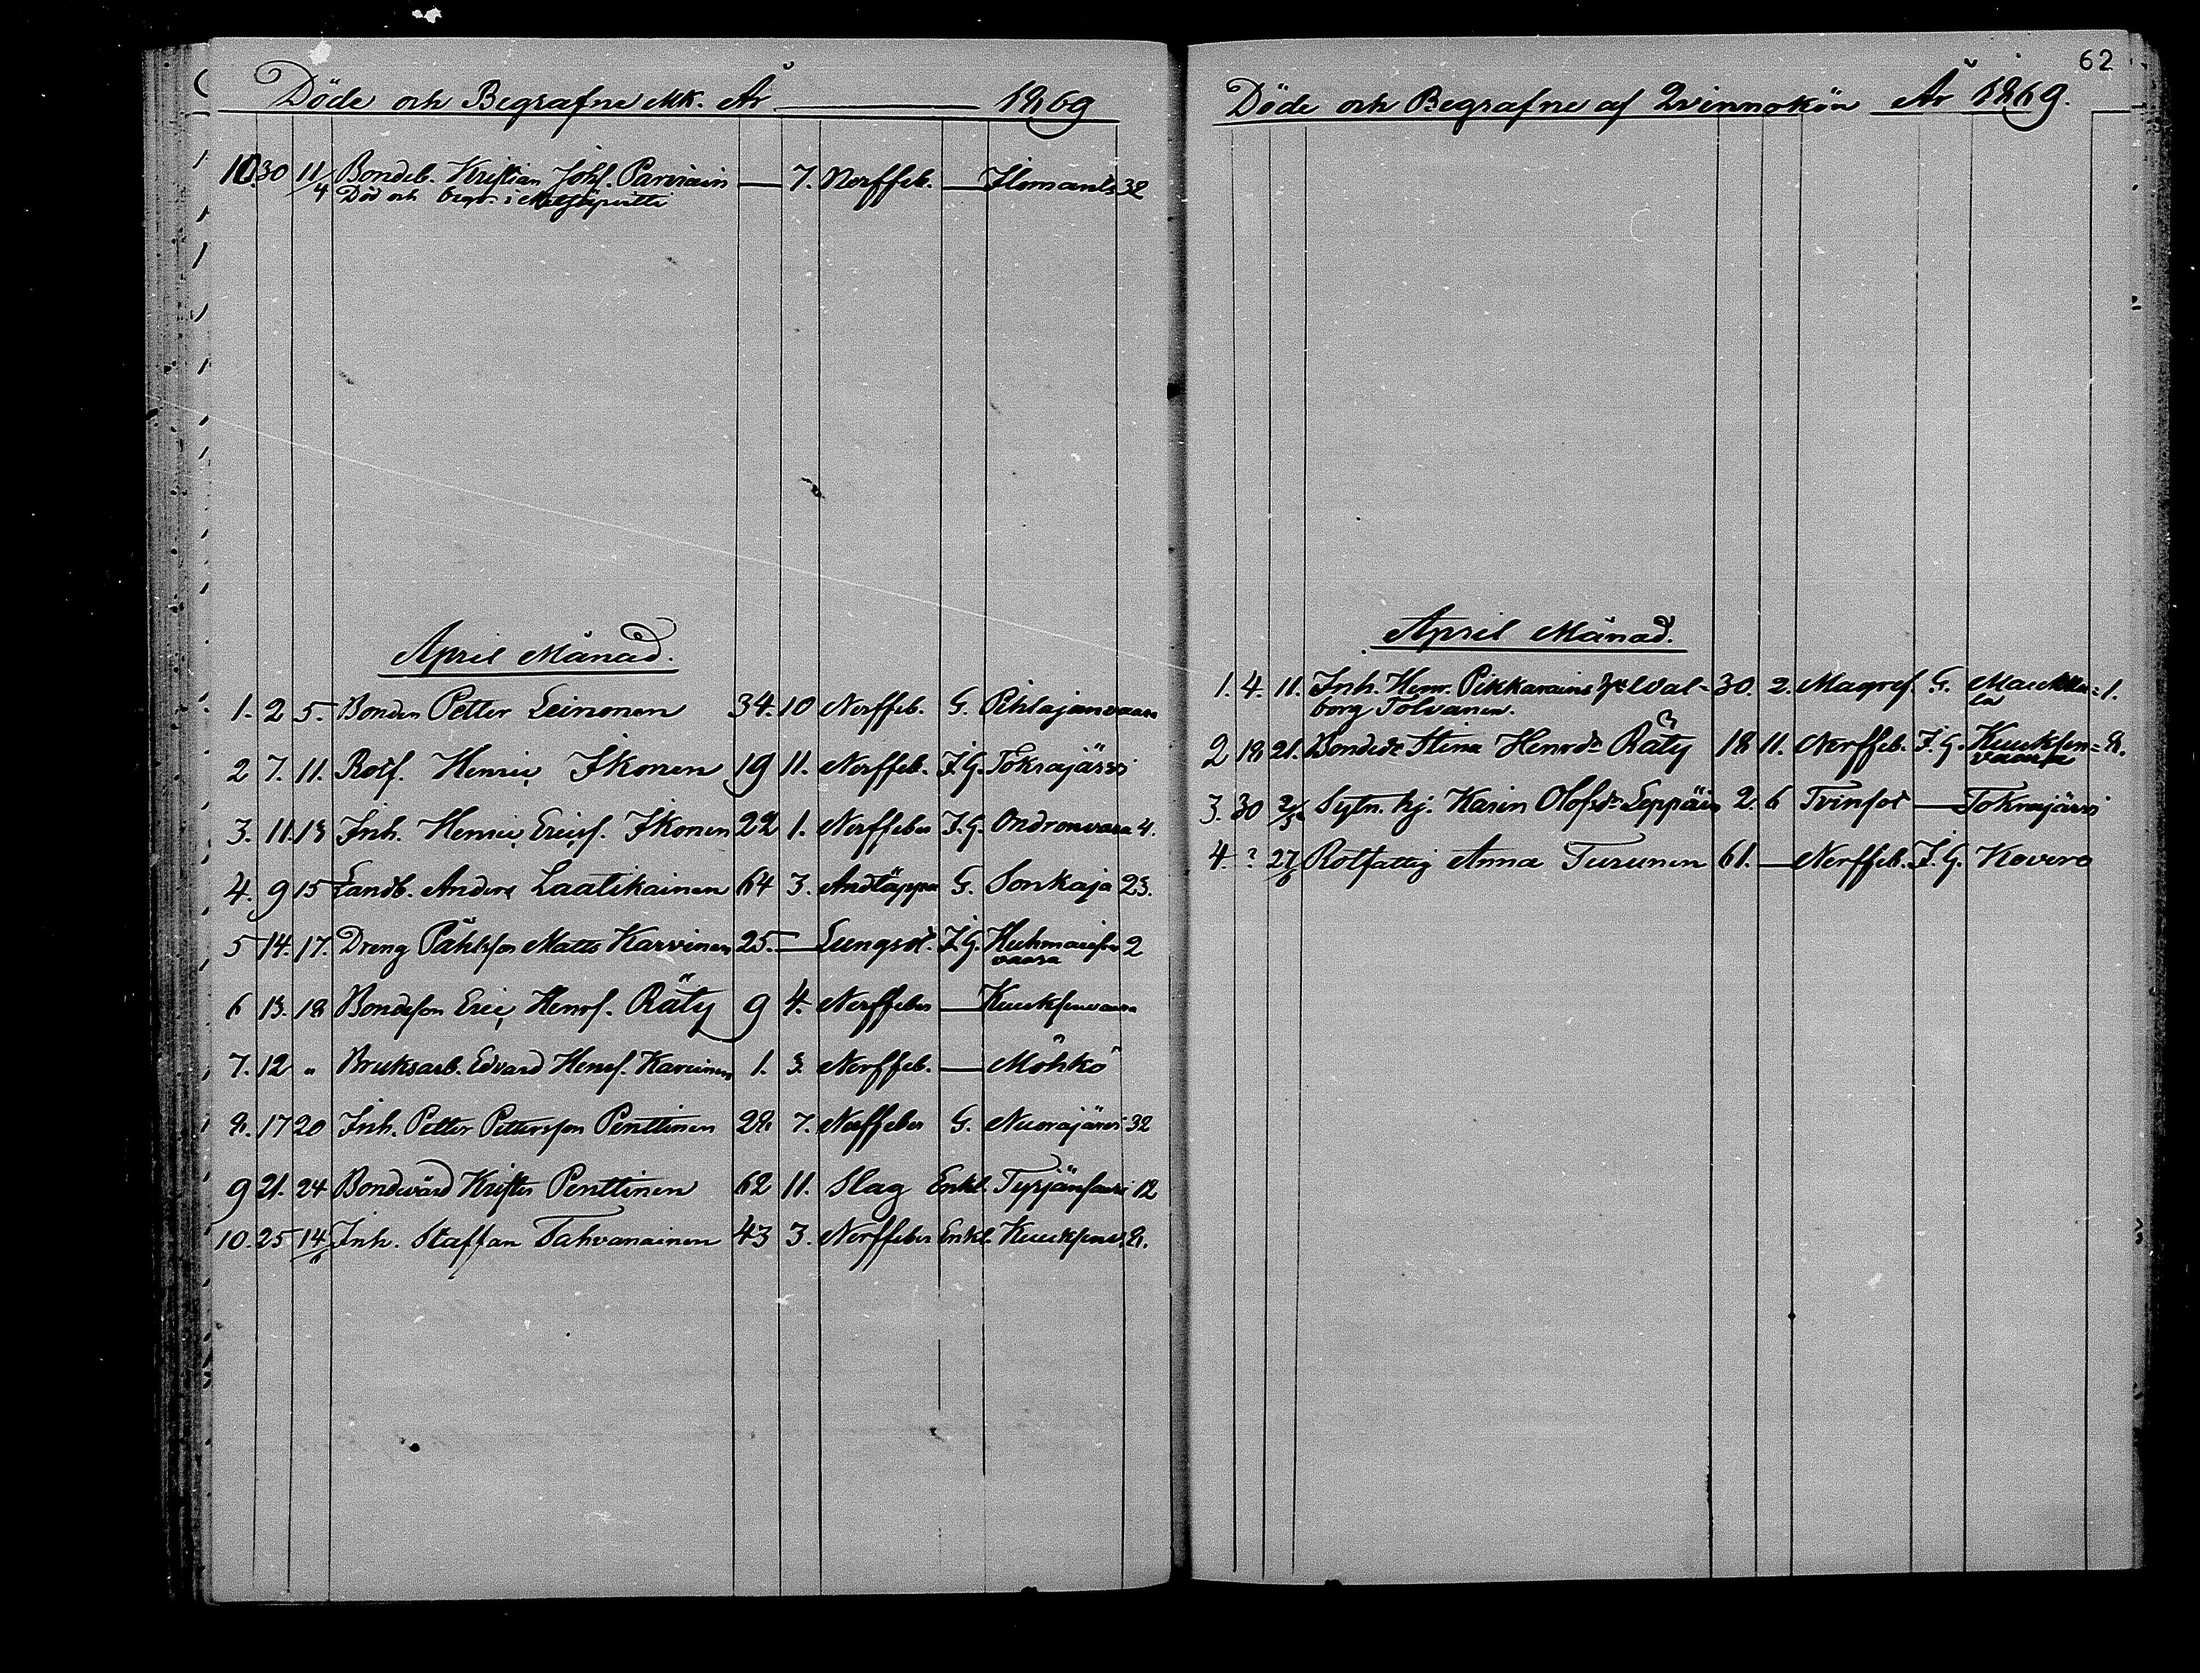 Döde och Begrafne Mk. År 1869
10. 30 11/4 Bondeb. Kristian Johs. Parviain — 7. Nerffeb. — Ilomants 32
Död och begr. i Metsäpirtti
April Månad.
1. 2 5. Bonden Petter Leinonen 34. 10 Nerffeb. G. Pihlajanvaara
2 7. 11. Rotf. Henric Ikonen 19 11. Nerffeb. I.G. Tokrajärvi
3. 11. 13 Inh. Henric Ericss. Ikonen 22 1. Nerffeber I.G. Ondronvaara 4.
4. 9 15 Landb. Anders Laatikainen 64 3. Andtäppa G. Sonkaja 23.
5 14. 17. Dreng Påhlsson Matts Karvinen 25. — Lungsot. I.G. 2
vaara
6 13. 18 Bondeson Eric Henrs. Räty 9 4. Nerffeber — Kuuksenvaara
7. 12 " Bruksarb. Edvard Henrs. Karvinen 1. 3. Nerffeb. — Möhkö
8. 17 20 Inh. Petter Pettersson Penttinen 28. 7. Nerffeber G. Nuorajärvi 32
9 21. 24 Bondevärd Krister Penttinen 62 11. Slag Enkl. Tyrjänsaari 12
10. 25 14/6 Inh. Staffan Tahvanainen 43 3. Nerffeber Enkl. Kuuksenv. 8.
62
Döde och Begrafne af Qvinnokön År 1869.
April Månad.
1. 4. 11. Inh. Henr. Pikkarains Wal- 30. 2. Magref. G. 1.
borg Tolvanen.
2 18 21. Bonded:r Stina Henrd:r Räty 18 11. Nerffeb. I.G. Kuuksen= 8.
vaara
3. 30 2/5 Sytn. hj. Karin Olofsd:r Leppäin 2. 6 Tvinsot — Tokrajärvi
4. ? 27/6 Rotfattig Anna Turunen 61. — Nerffeb. I.G. Kovero